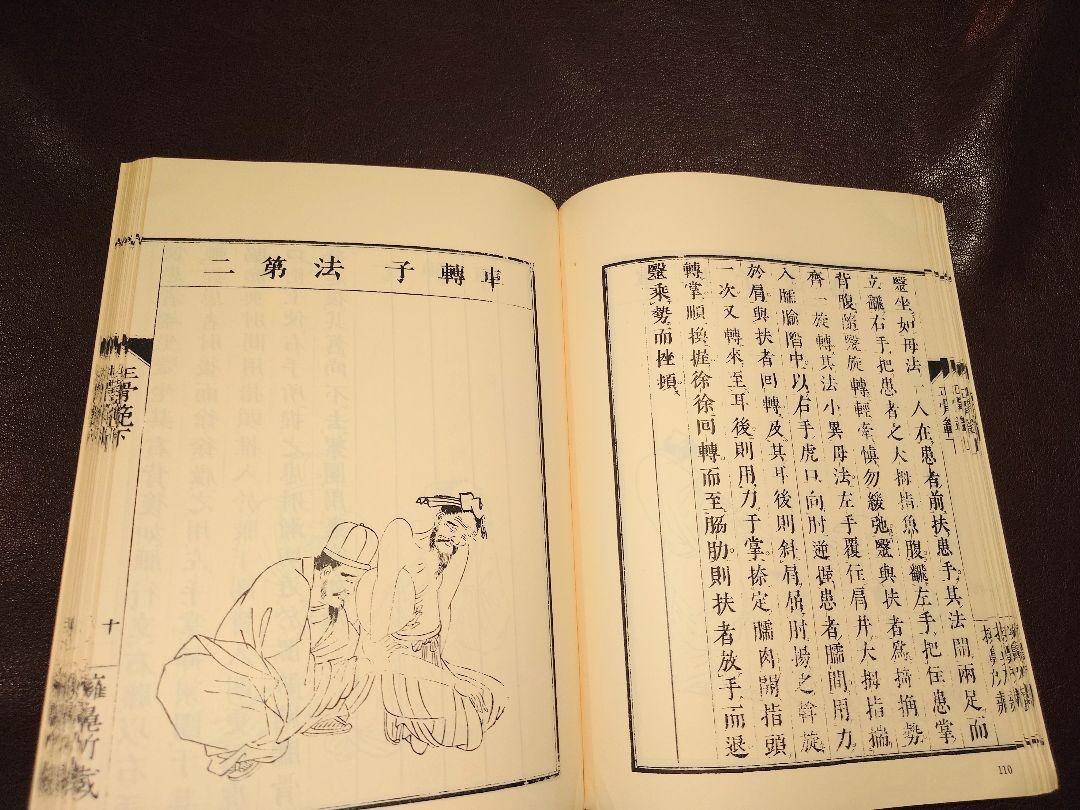 醫坐如母法一人在患者前扶患手其法開兩足而
立翻右手把患者之大拇指魚腹翻左手把住患掌
背腹隨醫旋轉輕牽慎勿緩弛醫與扶者為
齊一旋轉其法小異母法左手覆住肩井大拇指
入臑腧陷中以右手虎口向肘逆握患者臑間用力
於肩與扶者回轉及其耳後則斜肩肘揚之斡旋
一次又轉來至耳後則用力于掌捺定臑肉開指頭
轉掌順換握徐徐回轉而至脇肋則扶者放手而退
醫乘勢而挫頓
110
車轉子法第二
正骨範下
十